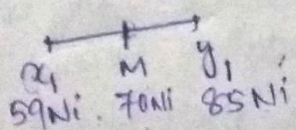 x₁ M y₁
59Ni. 70Ni 85Ni